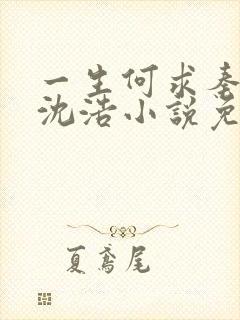 一生何求秦
沈浩小説免
夏鳶尾